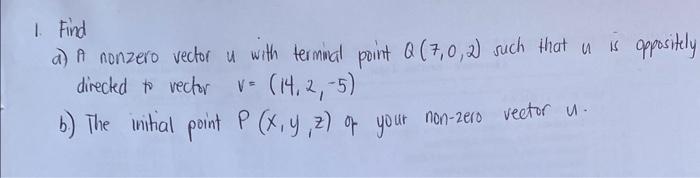 1. Find
a) A nonzero vector u with terminal point Q (7,0,2) such that u is oppositely
directed to vector v = (14, 2, -5)
b.) The initial point P (x, y, z) of your non-zero vector u.